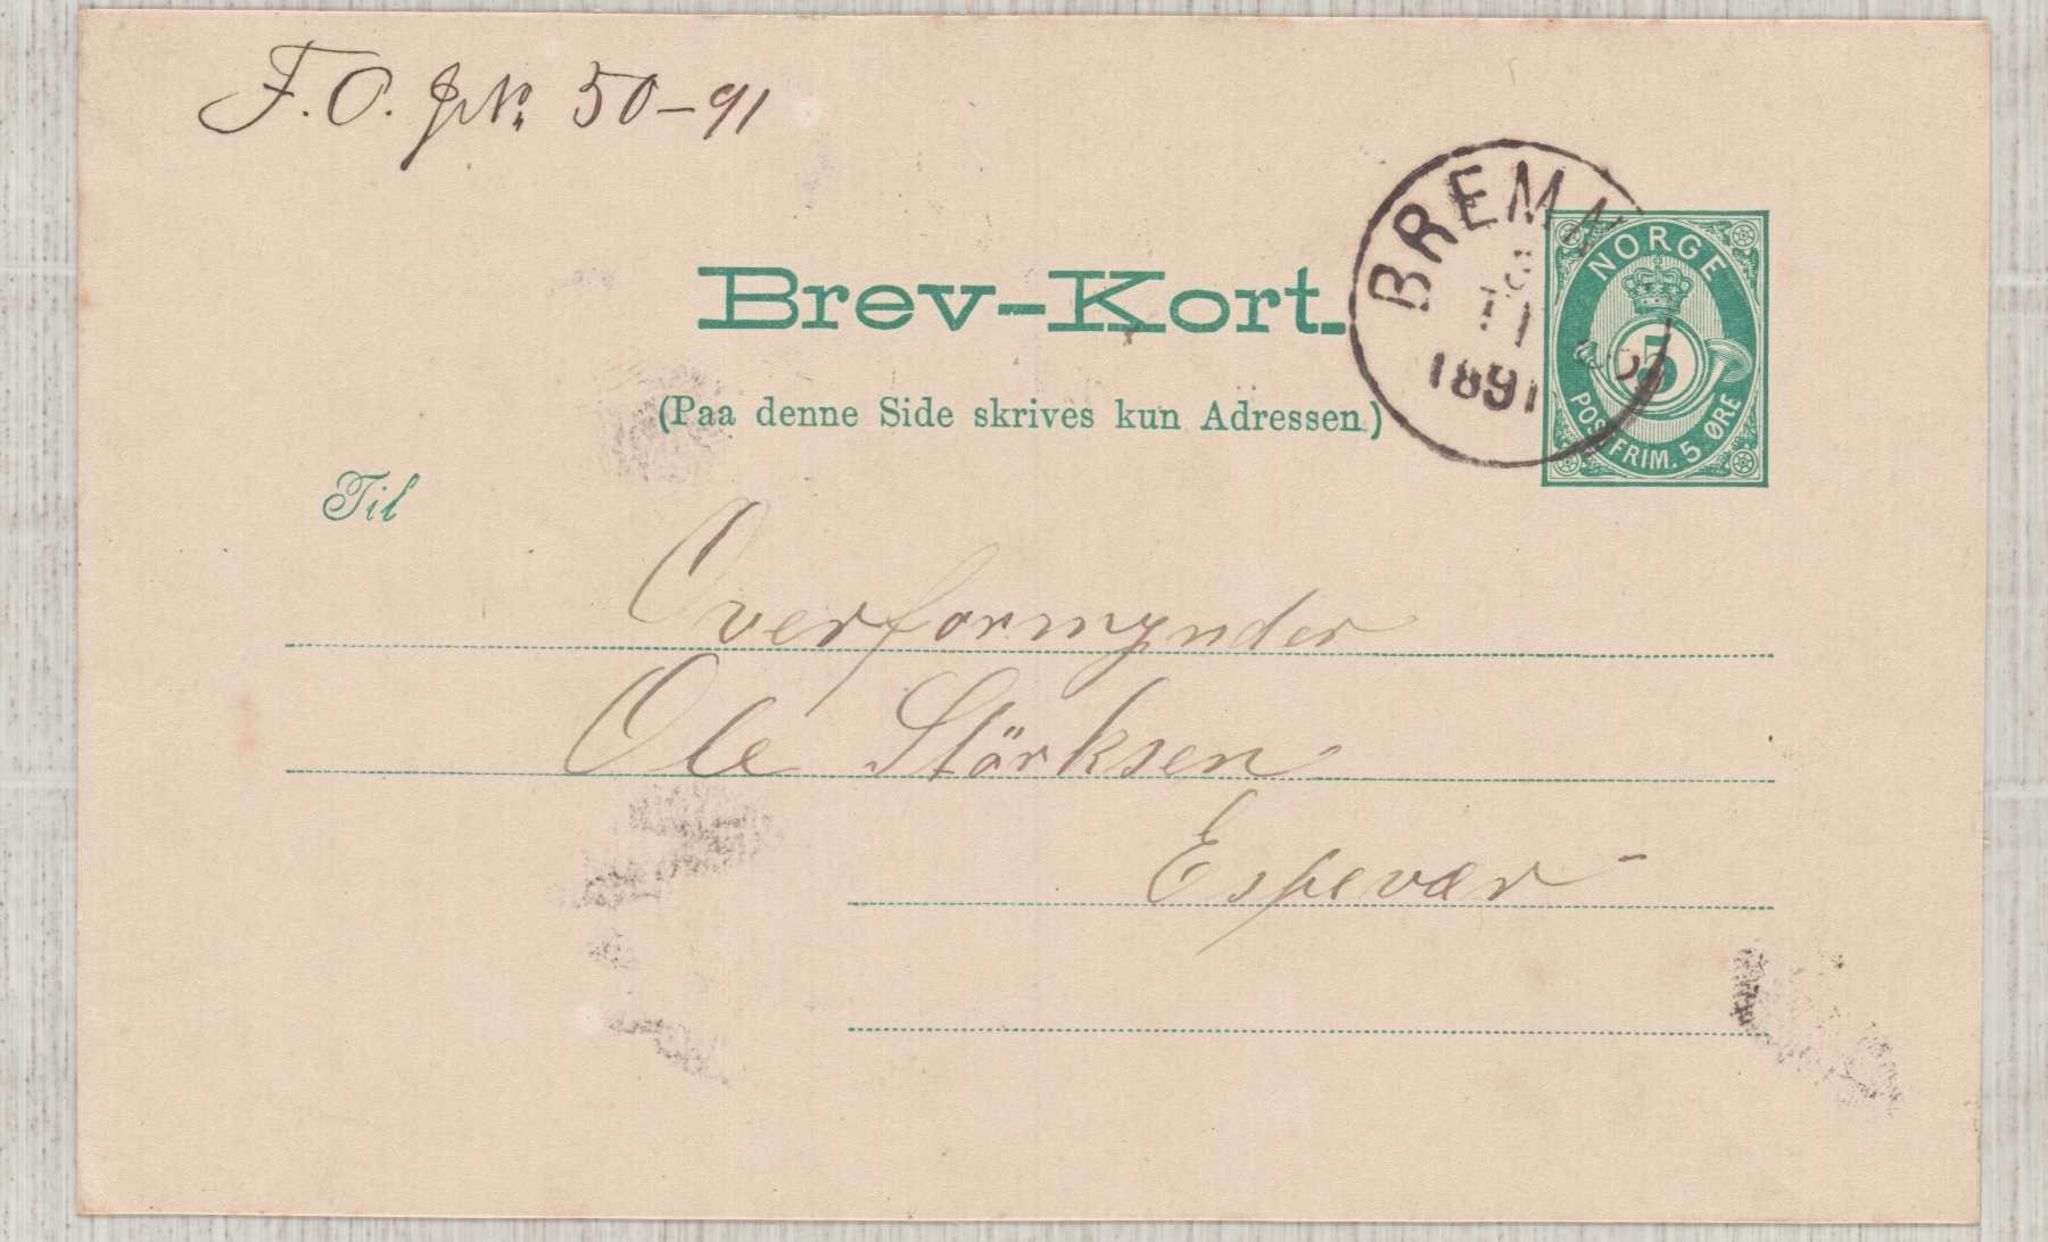 F. O. JN: 50-91
BREMN
1891
NORGE
5
POSTFRIM. 5 ØRE
Brev-Kort.
(Paa denne Side skrives kun Adressen.)
Til
Overformynder
Ole Störksen
Espevær